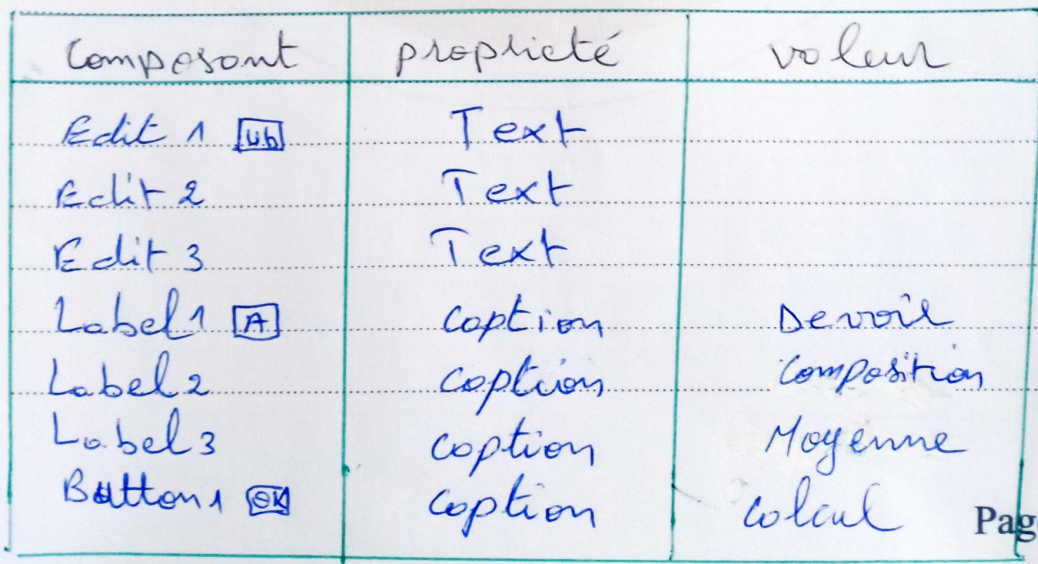 Composant propriété valeur
Edit 1 ab Text
Edit 2 Text
Edit 3 Text
Label 1 A caption Devoir
Label 2 caption Composition
Label 3 caption Moyenne
Button 1 OK caption calcul
Page